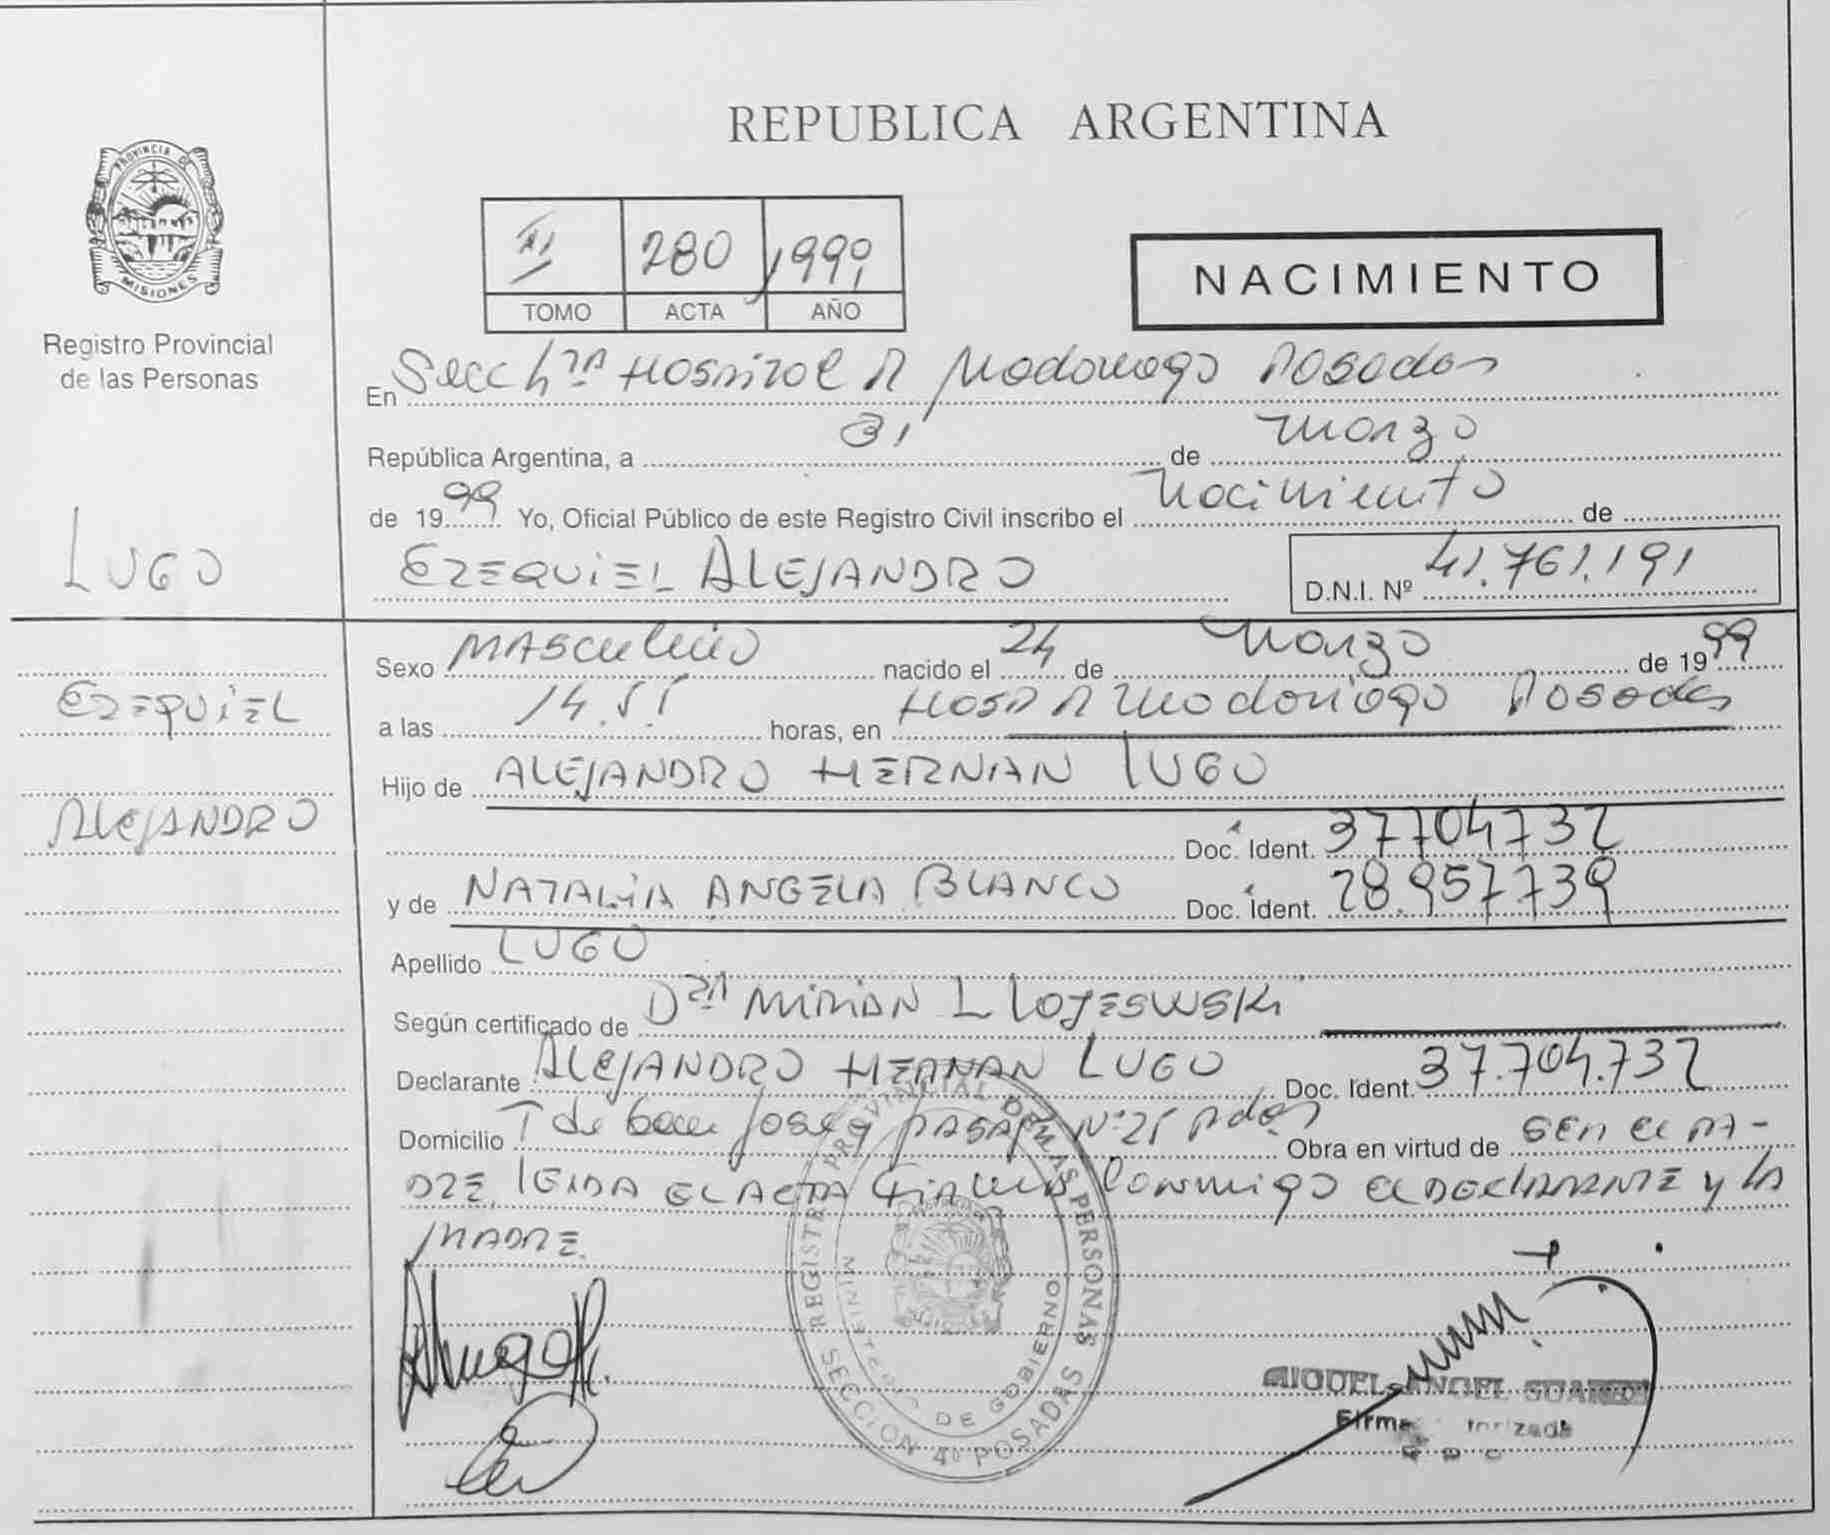 REPUBLICA ARGENTINA
PROVINCIA DE
MISIONES
Registro Provincial
de las Personas
280 1999
TOMO ACTA AÑO
NACIMIENTO
En Secc 4ta Hospital R Madariaga Posadas
República Argentina, a 31 de Marzo
de 1999 Yo, Oficial Público de este Registro Civil inscribo el Nacimiento de
LUGO
EZEQUIEL ALEJANDRO D.N.I. Nº 41.761.191
Sexo MASCULINO nacido el 24 de Marzo de 1999
EZEQUIEL
a las 14.55 horas, en HOSP R Madariaga Posadas
Hijo de ALEJANDRO HERNAN LUGO
ALEJANDRO
Doc. Ident. 37704732
y de NATALIA ANGELA BLANCO Doc. Ident. 28.957739
Apellido LUGO
Según certificado de Dra MIRIAN L
Declarante ALEJANDRO HERNAN LUGO Doc. Ident. 37.704.732
Domicilio Obra en virtud de SER EL PA-
DRE LEIDA EL ACTA FIRMAN Conmigo EL DECLARANTE y LA
MADRE.
REGISTRO PROVINCIAL DE LAS PERSONAS
MINISTERIO DE GOBIERNO
SECCION 4º POSADAS
MIGUEL ANGEL SUAREZ